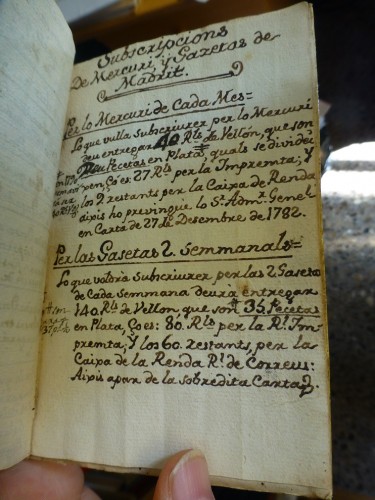 Subscripcions
De Mercuri, y Gazetas de
Madrit.
Per lo Mercuri de Cada Mes=
Lo que vulla subscriurer per lo Mercuri
deu entregar 40 Rls de Vellón, que son
Pecetas en Plata, quals se divideı̃
pen, Ço es: 27 Rls per la Impremta; Y
los 9 restants per la Caixa de Renda
aixis ho previngué lo Sr. Admr. Genel.
en Carta de 27 de Desembre de 1782.
Per las Gasetas 2. Semmanals=
Lo que voldria Subscriurer per las 2 Gasetas
de Cada Semmana deurá entregar
140 Rls de Vellon, que son 35 Pecetas
en Plata, Ço es: 80 Rls per la Rl. Im-
premta; Y los 60 restants, per la
Caixa de la Renda Rl. de Correus:
Aixis apar de la sobredita Carta